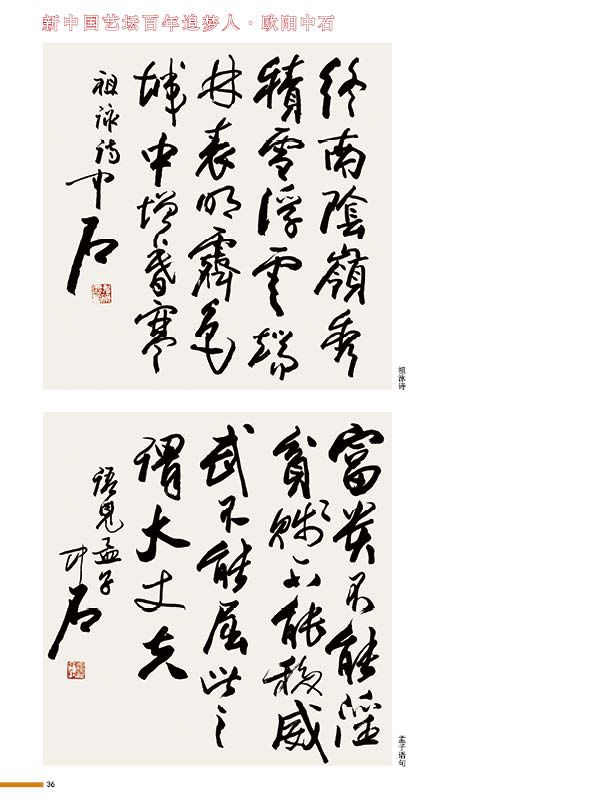 新中国艺坛百年追梦人·欧阳中石
终南陰嶺秀
積雪浮雲端
林表明霽色
城中增暮寒
祖詠詩
中石
祖咏诗
富贵不能淫
貧賤不能移威
武不能屈此之
谓大丈夫
语見孟子
中石
孟子语句
36